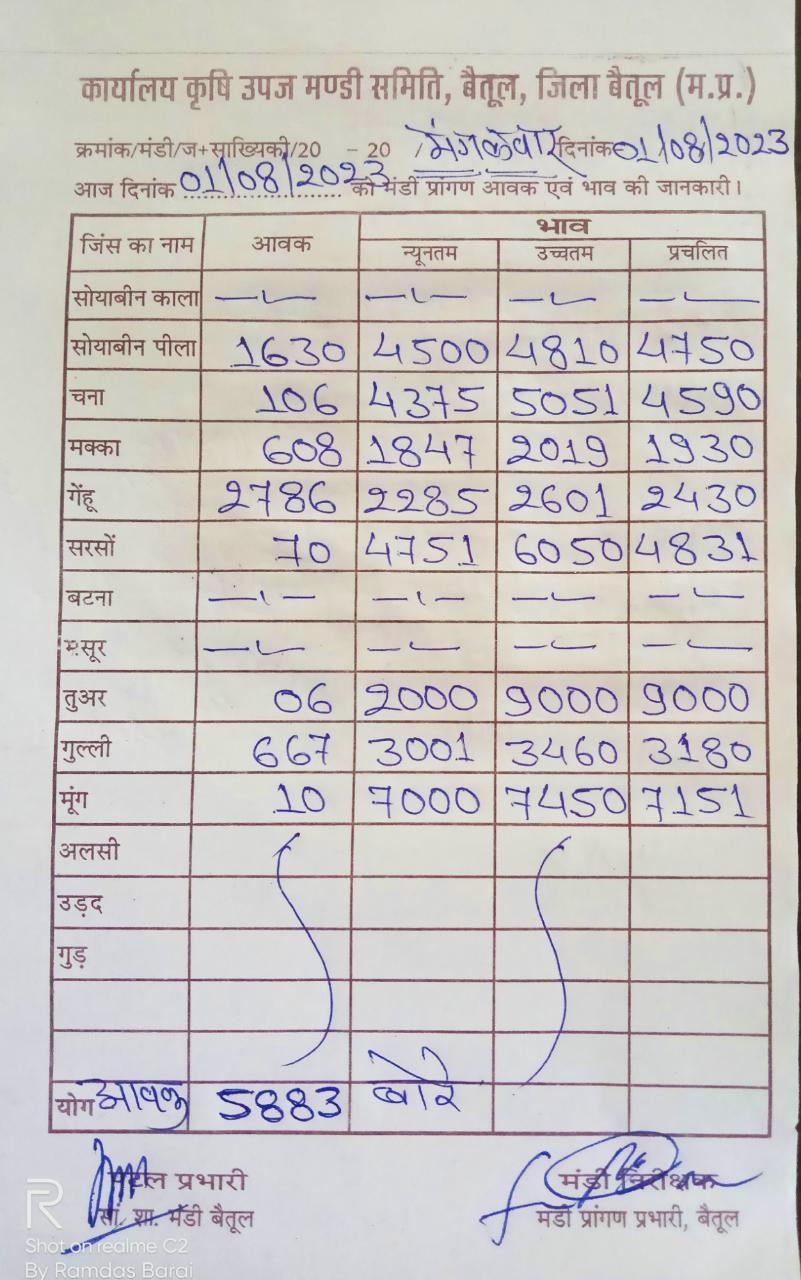 कार्यालय कृषि उपज मण्डी समिति, बैतूल, जिला बैतूल (म.प्र.)
क्रमांक/मंडी/ज+साख्यिकी/20 - 20 / मंगलवार दिनांक 01/08/2023
आज दिनांक 01/08/2023 को मंडी प्रांगण आवक एवं भाव की जानकारी।
जिंस का नाम आवक भाव
न्यूनतम उच्चतम प्रचलित
सोयाबीन काला — — — —
सोयाबीन पीला 1630 4500 4810 4750
चना 106 4375 5051 4590
मक्का 608 1847 2019 1930
गेंहू 2786 2285 2601 2430
सरसों 70 4751 6050 4831
बटना — — — —
मसूर — — — —
तुअर 06 2000 9000 9000
गुल्ली 667 3001 3460 3180
मूंग 10 7000 7450 7151
अलसी
उड़द
गुड़
योग आवक 5883 बोरे
प्रभारी मंडी निरीक्षक
सां. शा. मंडी बैतूल मंडी प्रांगण प्रभारी, बैतूल
R
Shot on realme C2
By Ramdas Barai